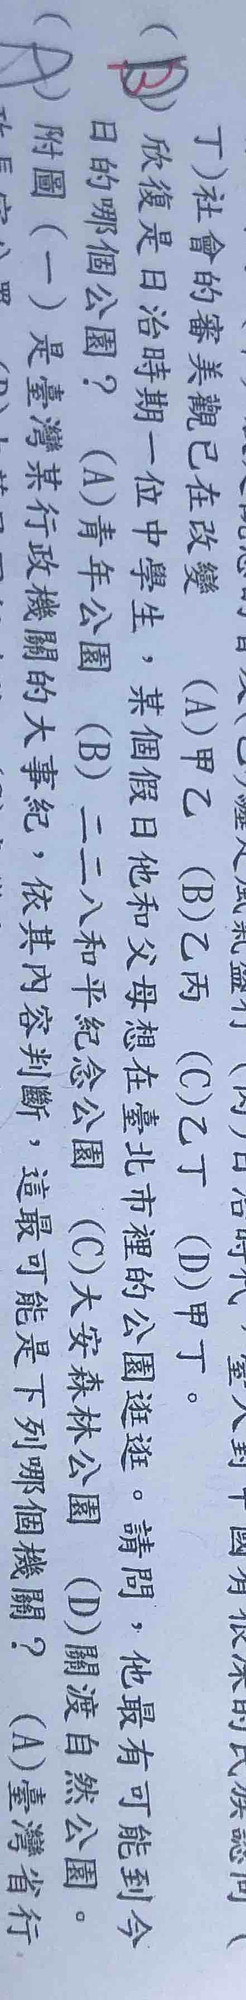 丁)社會的審美觀已在改變 (A)甲乙 (B)乙丙 (C)乙丁 (D)甲丁。
(B)欣復是日治時期一位中學生，某個假日他和父母想在臺北市裡的公園逛逛。請問，他最有可能到今
日的哪個公園？ (A)青年公園 (B)二二八和平紀念公園 (C)大安森林公園 (D)關渡自然公園。
(A)附圖（一）是臺灣某行政機關的大事紀，依其內容判斷，這最可能是下列哪個機關？ (A)臺灣省行